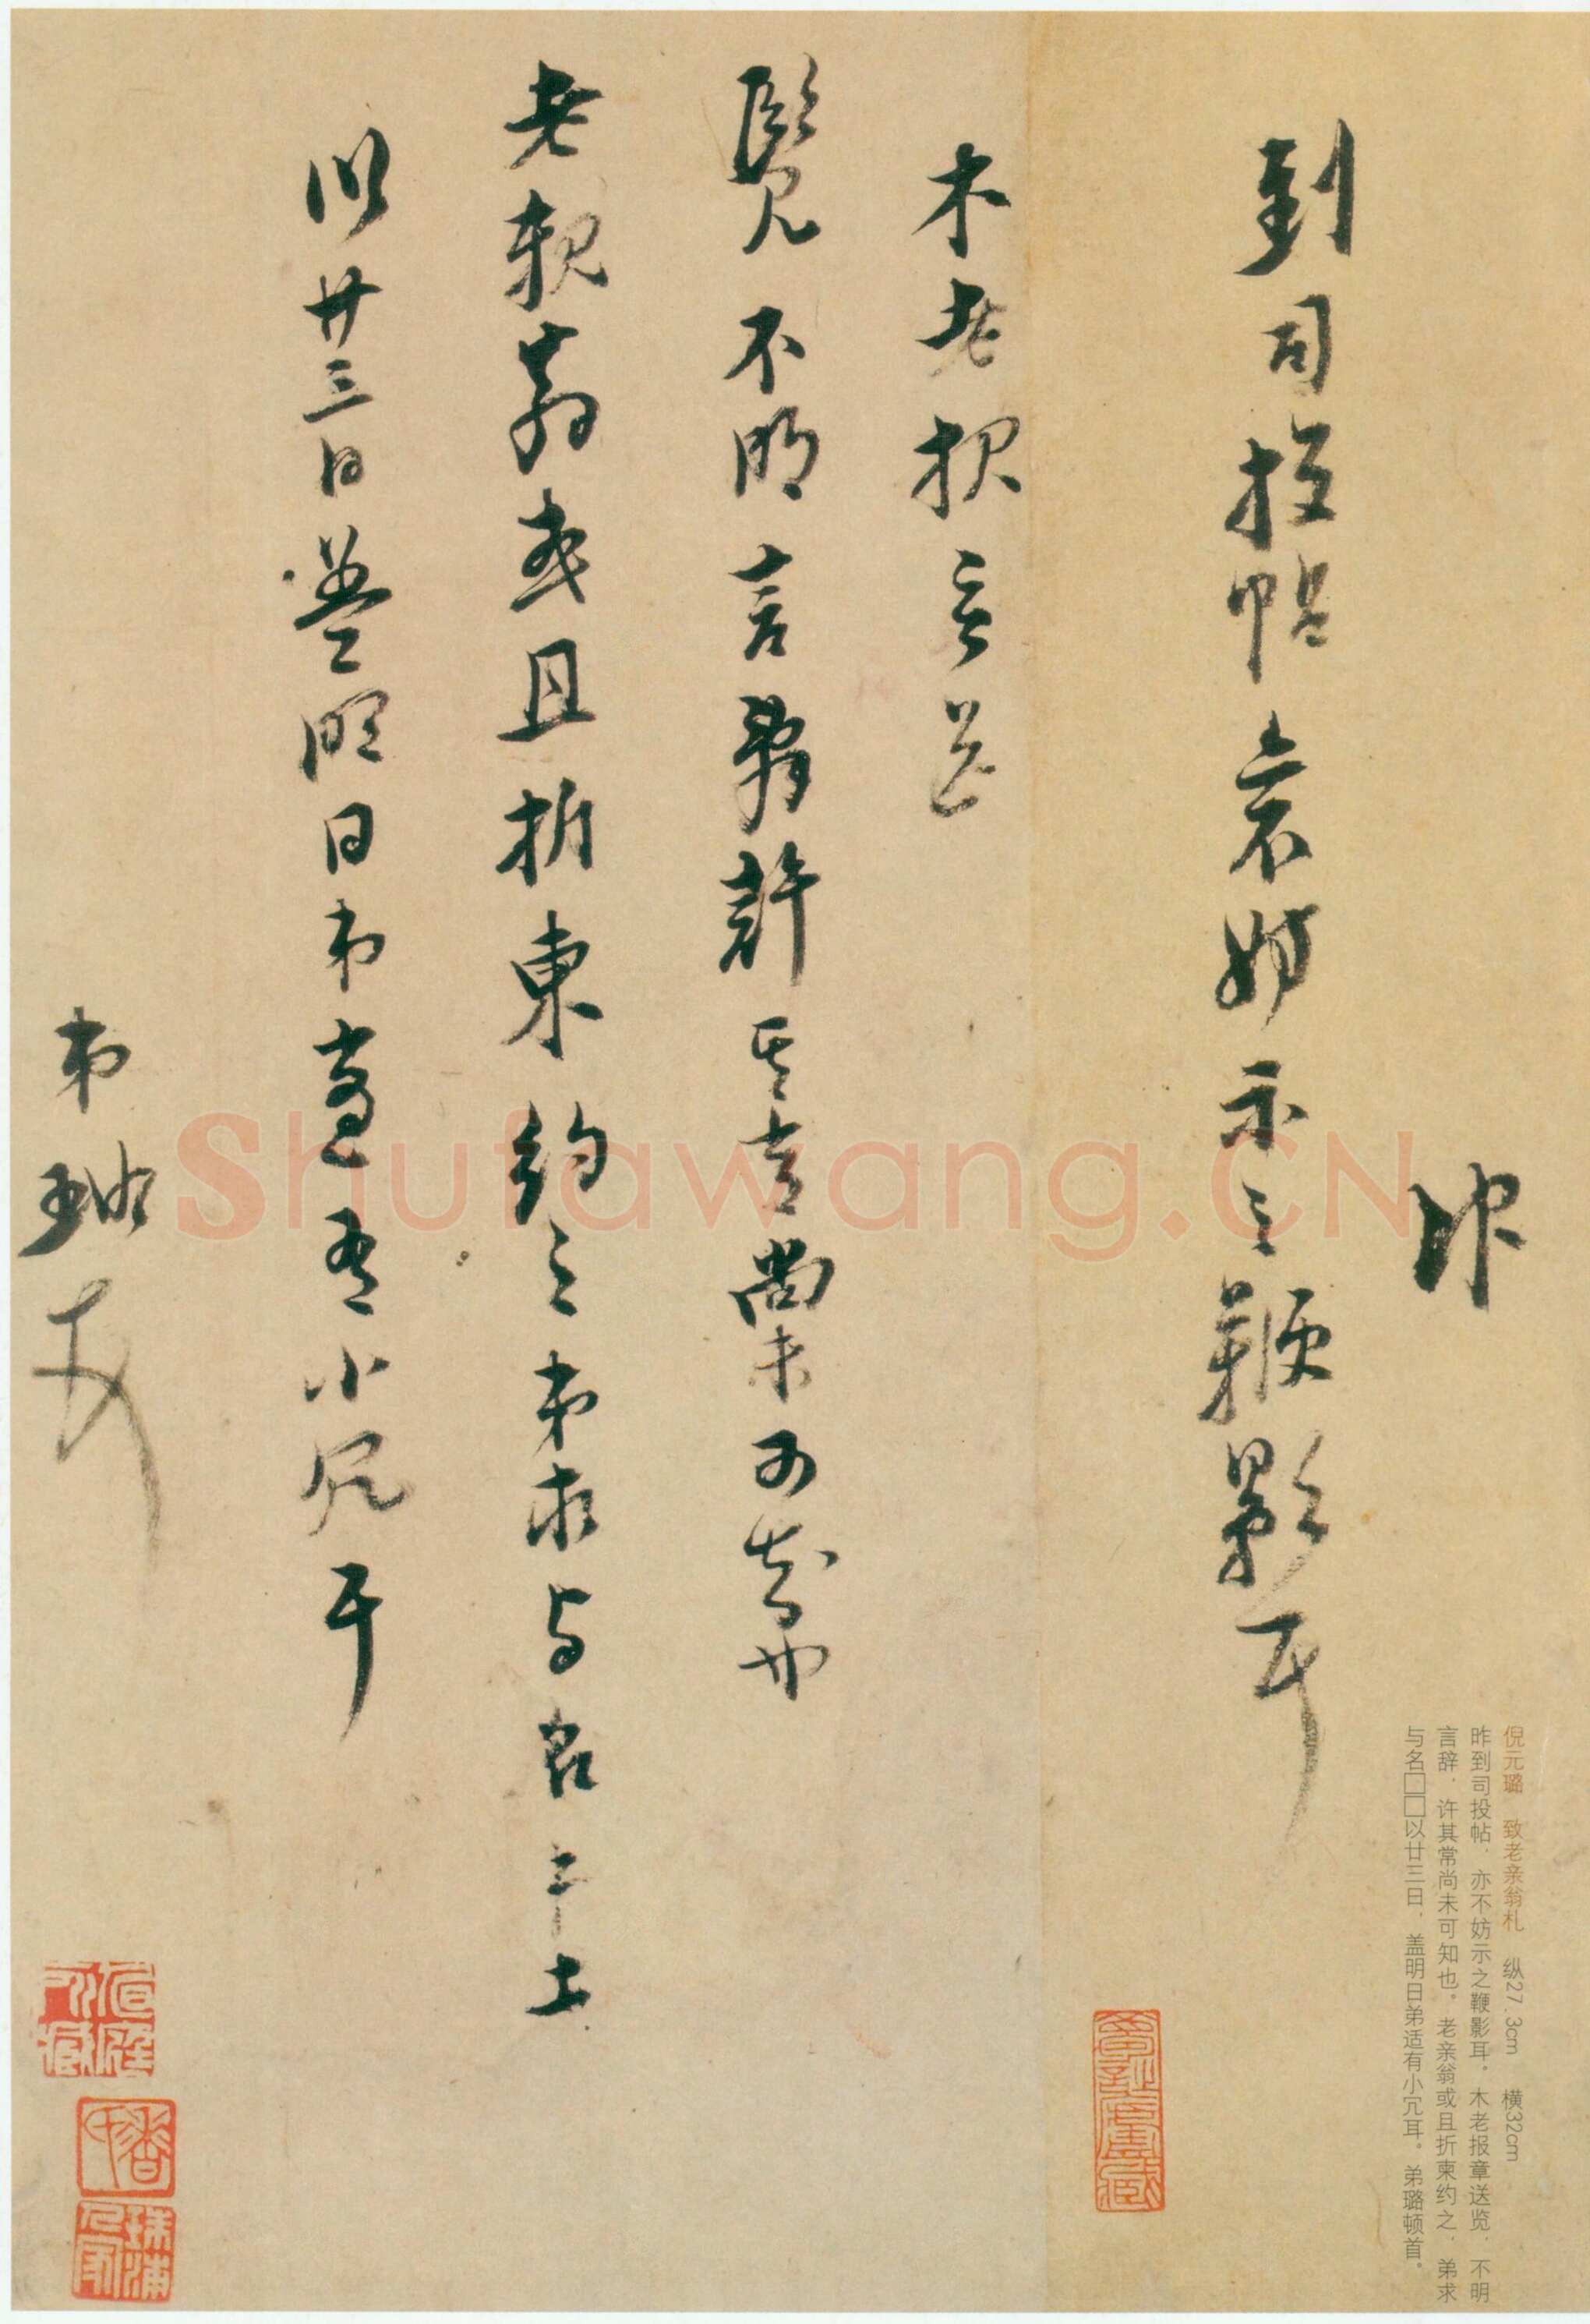 昨
到司投帖亦不妨示之鞭影耳
木老报章送
覽不明言辭許其尚未可知也
老親翁或且折柬約之弟求与名
以廿三日蓋明日弟適有小冗耳
弟璐頓首
倪元璐　致老亲翁札　纵27.3cm　横32cm
昨到司投帖，亦不妨示之鞭影耳。木老报章送览，不明
言辞，许其常尚未可知也。老亲翁或且折柬约之，弟求
与名□□以廿三日，盖明日弟适有小冗耳。弟璐顿首。
Shufawang.CN